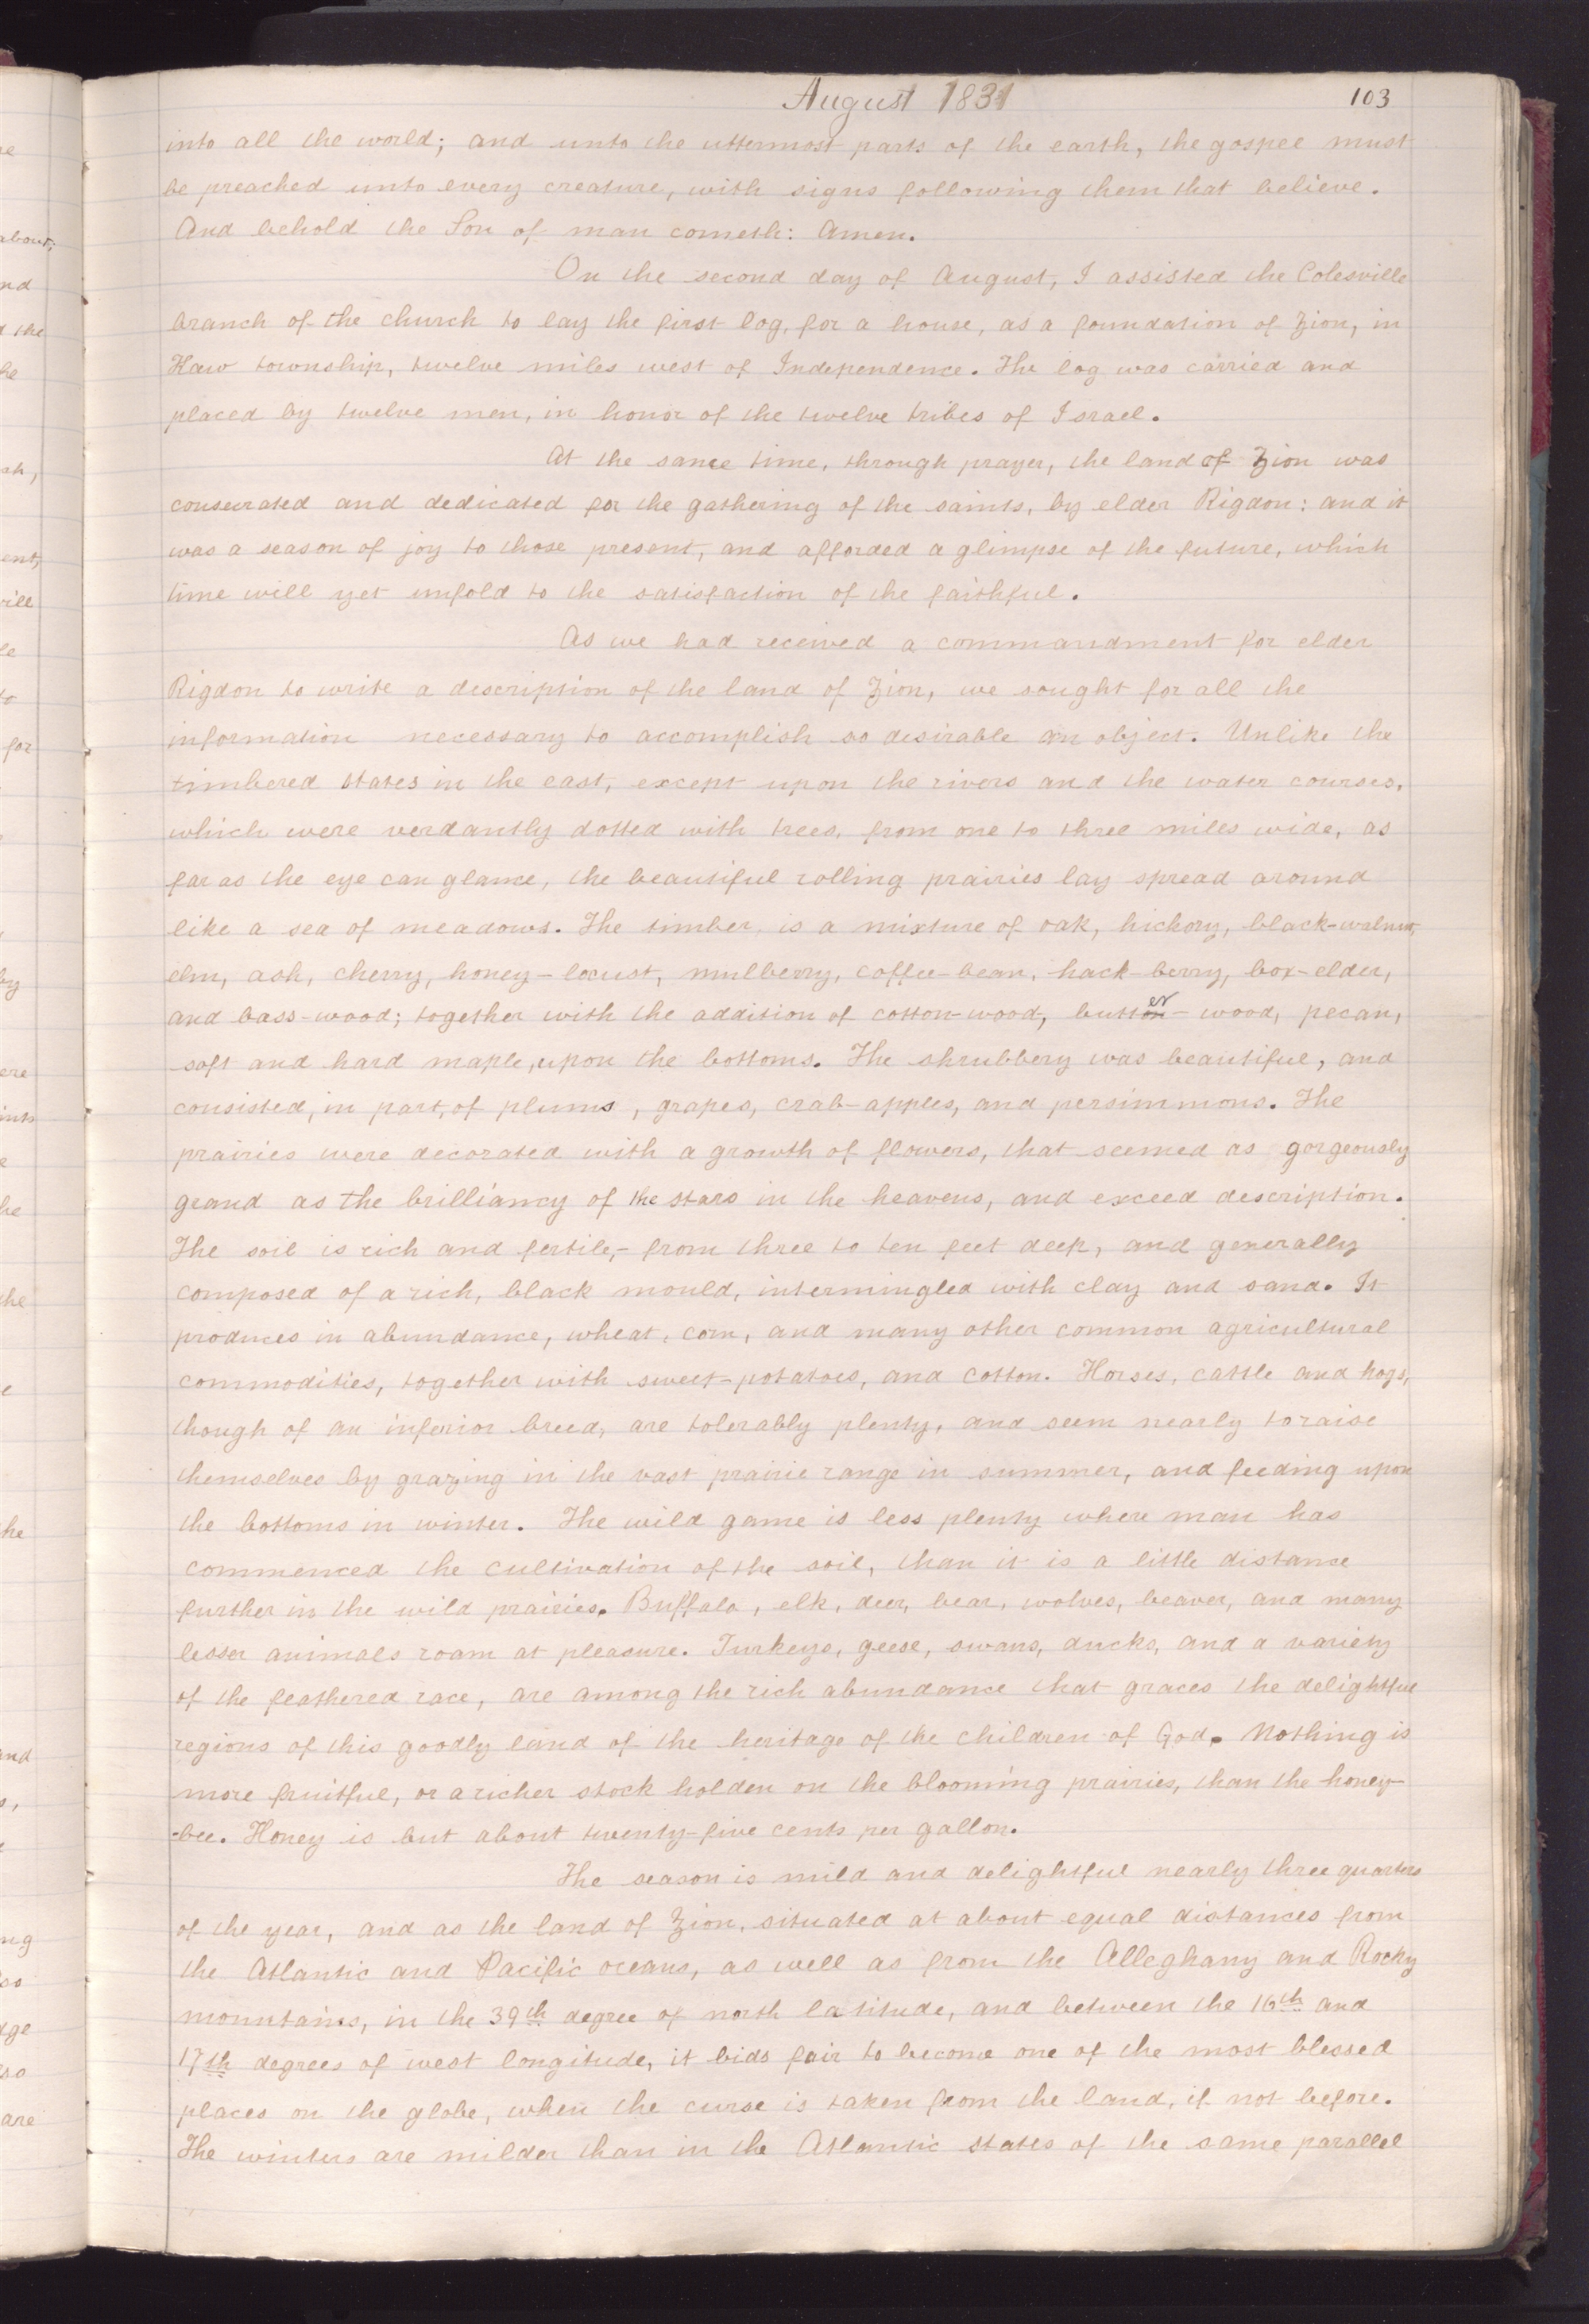 August 1831
103
into all the world; and unto the uttermost parts of the earth, the gospel must
be preached unto every creature, with signs following them that believe.
And behold the Son of man cometh: Amen.
On the second day of August, I assisted the Colesville
branch of the church to lay the first log, for a house, as a foundation of Zion, in
Kaw township, twelve miles west of Independence. The log was carried and
placed by twelve men, in honor of the twelve tribes of Israel.
At the same time, through prayer, the land of Zion was
consecrated and dedicated for the gathering of the saints, by elder Rigdon: and it
was a season of joy to those present, and afforded a glimpse of the future, which
time will yet unfold to the satisfaction of the faithful.
As we had received a commandment for elder
Rigdon to write a description of the land of Zion, we sought for all the
information necessary to accomplish so desirable an object. Unlike the
timbered states in the east, except upon the rivers and the water courses,
which were verdantly dotted with trees, from one to three miles wide, as
far as the eye can glance, the beautiful rolling prairies lay spread around
like a sea of meadows. The timber, is a mixture of oak, hickory, black-walnut,
elm, ash, cherry, honey-locust, mulberry, coffee-bean, hack-berry, box-elder,
and bass-wood; together with the addition of cotton-wood, butter-wood, pecan,
soft and hard maple, upon the bottoms. The shrubbery was beautiful, and
consisted, in part, of plums, grapes, crab-apples, and persimmons. The
prairies were decorated with a growth of flowers, that seemed as gorgeously
grand as the brilliancy of the stars in the heavens, and exceed description.
The soil is rich and fertile,- from three to ten feet deep, and generally
composed of a rich, black mould, intermingled with clay and sand. It
produces in abundance, wheat, corn, and many other common agricultural
commodities, together with sweet-potatoes, and cotton. Horses, cattle and hogs,
though of an inferior breed, are tolerably plenty, and seem nearly to raise
themselves by grazing in the vast prairie range in summer, and feeding upon
the bottoms in winter. The wild game is less plenty where man has
commenced the cultivation of the soil, than it is a little distance
further in the wild prairies. Buffalo, elk, deer, bear, wolves, beaver, and many
lesser animals roam at pleasure. Turkeys, geese, swans, ducks, and a variety
of the feathered race, are among the rich abundance that graces the delightful
regions of this goodly land of the heritage of the children of God. Nothing is
more fruitful, or a richer stock holden on the blooming prairies, than the honey-
-bee. Honey is but about twenty-five cents per gallon.
The season is mild and delightful nearly three quarters
of the year, and as the land of Zion, situated at about equal distances from
the Atlantic and Pacific oceans, as well as from the Alleghany and Rocky
mountains, in the 39th degree of north latitude, and between the 16th and
17th degrees of west longitude, it bids fair to become one of the most blessed
places on the globe, when the curse is taken from the land, if not before.
The winters are milder than in the Atlantic states of the same parallel